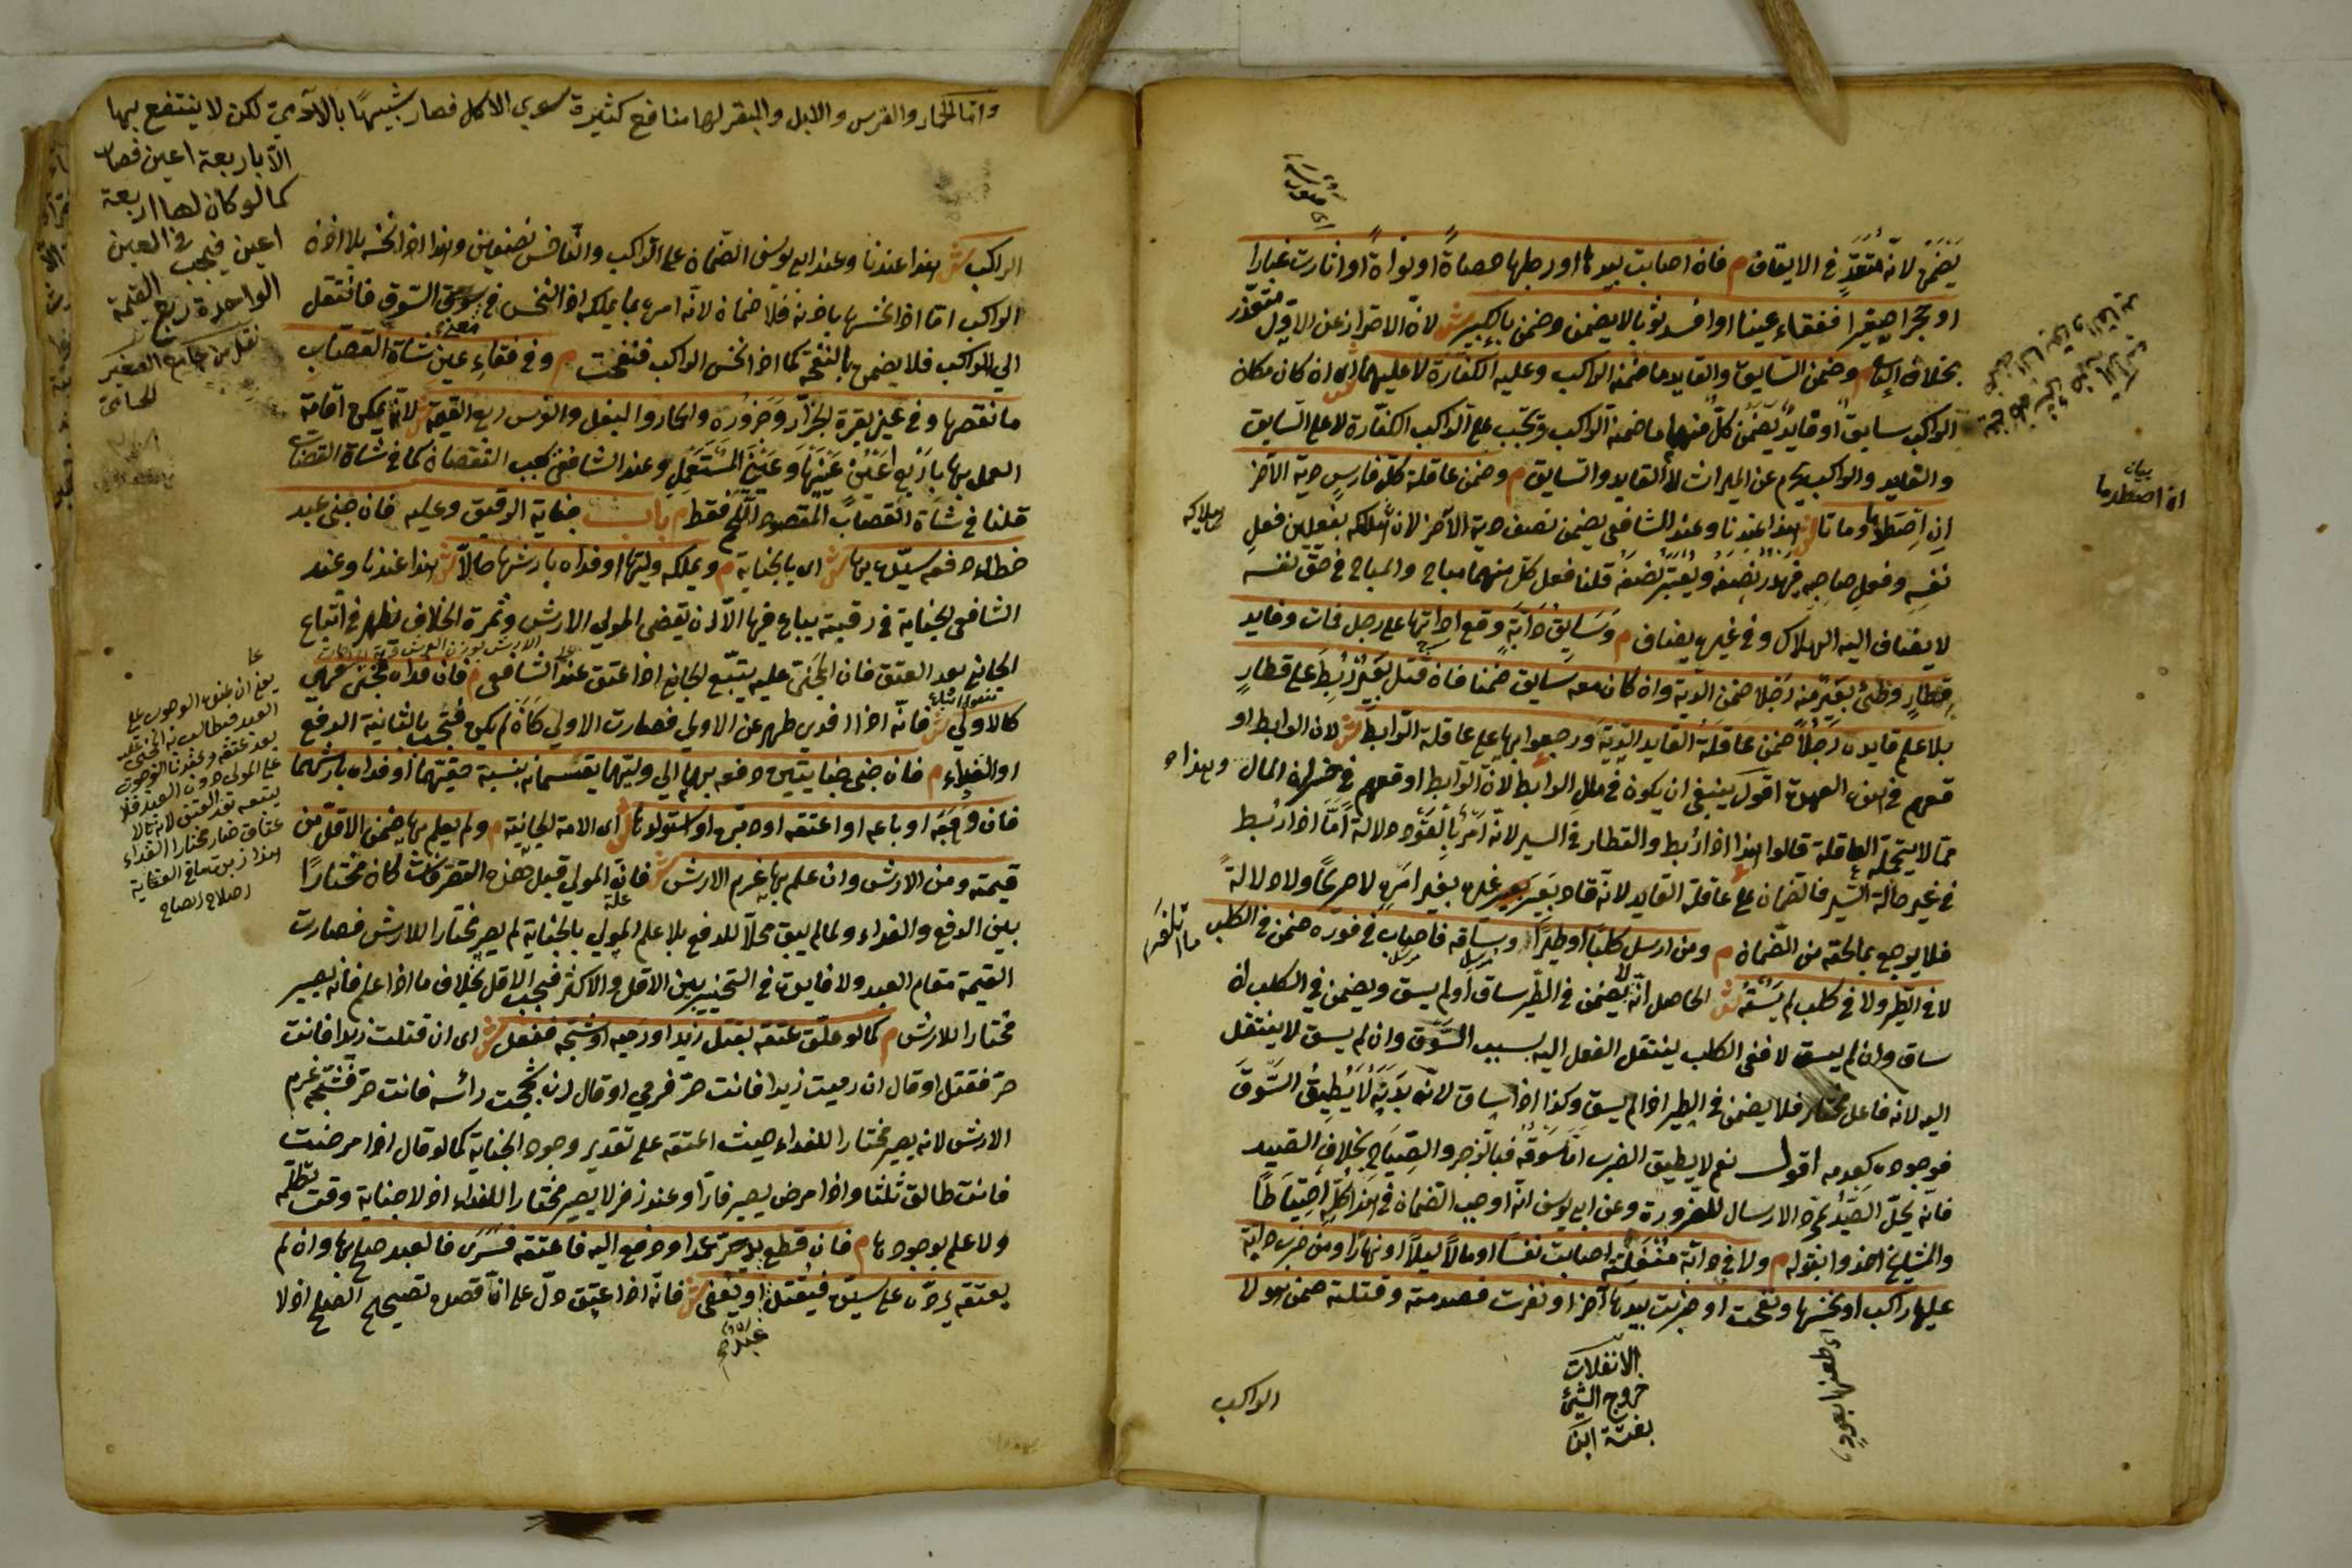 يضمن لانه متعدٍّ في الايقاف م فان اصابت بيدها او رجلها حصاةً او نواةً او اثارت غبارا
او حجرا صغيرا ففقاء عينا او افسد ثوبا لا يضمن وضمن بالكبير ش لان الاحتراز عن الاول متعذر
بخلاف م وضمن السايق والقايد ما ضمنه الراكب وعليه الكفارة لا عليهما ش اى ان كان مكان
الراكب سايق او قايد يضمن كل منهما ما ضمنه الراكب وتجب على الراكب الكفارة لا على السايق
والقايد والراكب يحرم عن الميراث لا القايد والسايق م وضمن عاقلة كل فارس دية الآخر
ان اصطدما وماتا ش هذا عندنا وعند الشافعى يضمن نصف دية الآخر لان هلاكه بفعلين فعل
نفسه وفعل صاحبه فيهدر نصفه ويعتبر نصفه قلنا فعل كل منهما مباح والمباح في حق نفسه
لا يضاف اليه الهلاك وفي غيره يضاف م وسايق دابة وقع اداتها على رجل فمات وقايد
قطار وطئ بعير منه رجلا ضمن الدية وان كان معه سايق ضمنا فان قتل بعير ربط على قطار
بلا علم قايده رجلا ضمن عاقلة القايد الدية ورجعوا بها على عاقلة الرابط ش لان الرابط او
قعهم في هذه العهدة اقول ينبغي ان يكون في مال الرابط لان الرابط اوقعهم في خسران المال وهذا
مما لا يتحمله العاقلة قالوا هذا اذا ربط والقطار في السير لانه امر بالقود دلالة اما اذا ربط
في غير حالة السير فالضمان على عاقلة القايد لانه قاد بعير غيره بغير امره لا صريحا ولا دلالة
فلا يرجع بما لحقه من الضمان م ومن ارسل كلبا او طيرا وساقه فاصاب في فوره ضمن في الكلب
لا في الطير ولا في كلب لم يسقه ش الحاصل انه لا يضمن في الطير ساق او لم يسق ويضمن في الكلب ان
ساق وان لم يسق لا ففى الكلب ينتقل الفعل اليه بسبب السوق وان لم يسق لا ينتقل
اليه لانه فاعل مختار فلا يضمن في الطير اذا لم يسق وكذا اذا ساق لانه بدنه لا يطيق السوق
فوجوده كعدمه اقول نعم لا يطيق الضرب اما سوقه فبالزجر والصياح بخلاف الصيد
فانه يحل الصيد بمجرد الارسال للضرورة وعن ابي يوسف انه اوجب الضمان في هذا كله احتياطا
والمشايخ اخذوا بقوله م ولا في دابة منفلتة اصابت نفسا او مالا ليلا او نهارا ومن ضرب دابة
عليها راكب او نخسها ونفحت او ضربت بيدها آخر او نفرت فصدمته وقتلته ضمن هو لا
الانفلات
خروج الشئ
بغتة
الراكب
بيان
ان اصطدما
هلاكه
واما الحمار والفرس والابل والبقر لها منافع كثيرة سوى الاكل فصار شبيها بالآدمي لكن لا ينتفع بها
الا باربعة اعين فصار
كما لو كان لها اربعة
اعين فيجب في العين
الواحدة ربع القيمة
نقل من جامع الصغير
الراكب ش هذا عندنا وعند ابي يوسف الضمان على الراكب والناخس نصفين وهذا اذا نخسه بلا اذن
الراكب اما اذا نخسها باذنه فلا ضمان لانه امره بما يملكه اذ النخس في معنى السوق فانتقل
الى الراكب فلا يضمن بالنفحة كما اذا نخس الراكب فنفحت م وفي فقاء عين شاة القصاب
ما نقصها وفي عين بقرة الجزار وجزوره والحمار والبغل والفرس ربع القيمة ش لانه يمكن اقامة
العمل بها باربع اعين عينيها وعيني المستعمل وعند الشافعي يجب النقصان كما في شاة القصاب
قلنا في شاة القصاب المقصود اللحم فقط م باب جناية الرقيق وعليه فان جنى عبد
خطاء دفعه سيده بها ش اى بالجناية م ويملكه وليها او فداه بارشها حالا ش هذا عندنا وعند
الشافعى الجناية في رقبته يباع فيها الا ان يقضى المولى الارش وثمرة الخلاف تظهر في اتباع
الجاني بعد العتق فان المجنى عليه يتبع الجاني اذا عتق عند الشافعى م فان فداه فجنى فهي
كالاولى ش فانه اذا فدى طهر عن الاولى فصارت الاولى كان لم يكن فيجب بالثانية الدفع
او الفداء م فان جنى جنايتين دفعه بهما الى وليهما يقتسمانه بنسبة حقيهما او فداه بارشهما
فان وهبه او باعه او اعتقه او دبره او استولدها ش اى الامة الجانية م ولم يعلم بها ضمن الاقل من
قيمته ومن الارش وان علم بها غرم الارش ش فان المولى قبل هذه التصرفات كان مختارا
بين الدفع والفداء ولما لم يبق محلا للدفع بلا علم المولى بالجناية لم يصر مختارا للارش فصارت
القيمة مقام العبد ولا فايدة في التخيير بين الاقل والاكثر فيجب الاقل بخلاف ما اذا علم فانه يصير
مختارا للارش م كما لو علق عتقه بقتل زيد او رميه او شجه ففعل ش اى ان قتلت زيدا فانت
حر فقتل او قال ان رميت زيدا فانت حر فرمى او قال ان شججت رائسه فانت حر فشجه غرم
الارش لانه يصير مختارا للفداء حيث اعتقه على تقدير وجود الجناية كما لو قال اذا مرضت
فانت طالق ثلثا واذا مرض يصير فارا وعند زفر لا يصير مختارا للفداء اذ لا جناية وقت تكلمه
ولا علم بوجودها م فان قطع يد حر عمدا ودفع اليه فاعتقه فسرى فالعبد صلح بها وان لم
يعتقه يرد على سيده فيقتل او يعفى ش فانه اذا اعتق دل على ان قصده تصحيح الصلح اذ لا